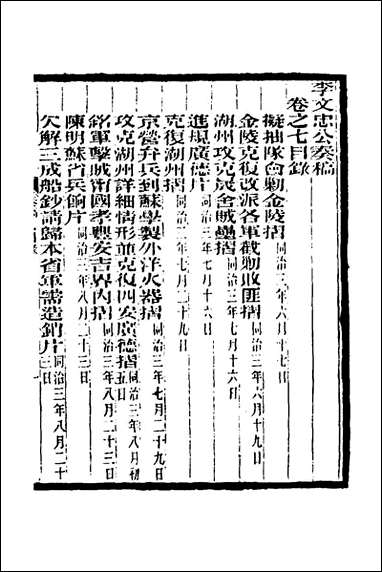 李文忠公奏稿
卷之七目錄
擬抽隊會勦金陵摺 同治三年六月十七日
金陵克復改派各軍截勦敗匪摺 同治三年六月十九日
湖州攻克晟舍賊壘摺 同治三年七月十六日
進規廣德片 同治三年七月十六日
克復湖州摺 同治三年七月二十九日
京營弁兵到蘇學製外洋火器摺 同治三年七月二十九日
攻克湖州詳細情形並克復四安廣德摺 同治三年八月初五日
銘軍擊賊甯國孝豐安吉界內摺 同治三年八月二十三日
陳明蘇省兵餉片 同治三年八月二十三日
欠解三成船鈔請歸本省軍需造銷片 同治三年八月二十三日